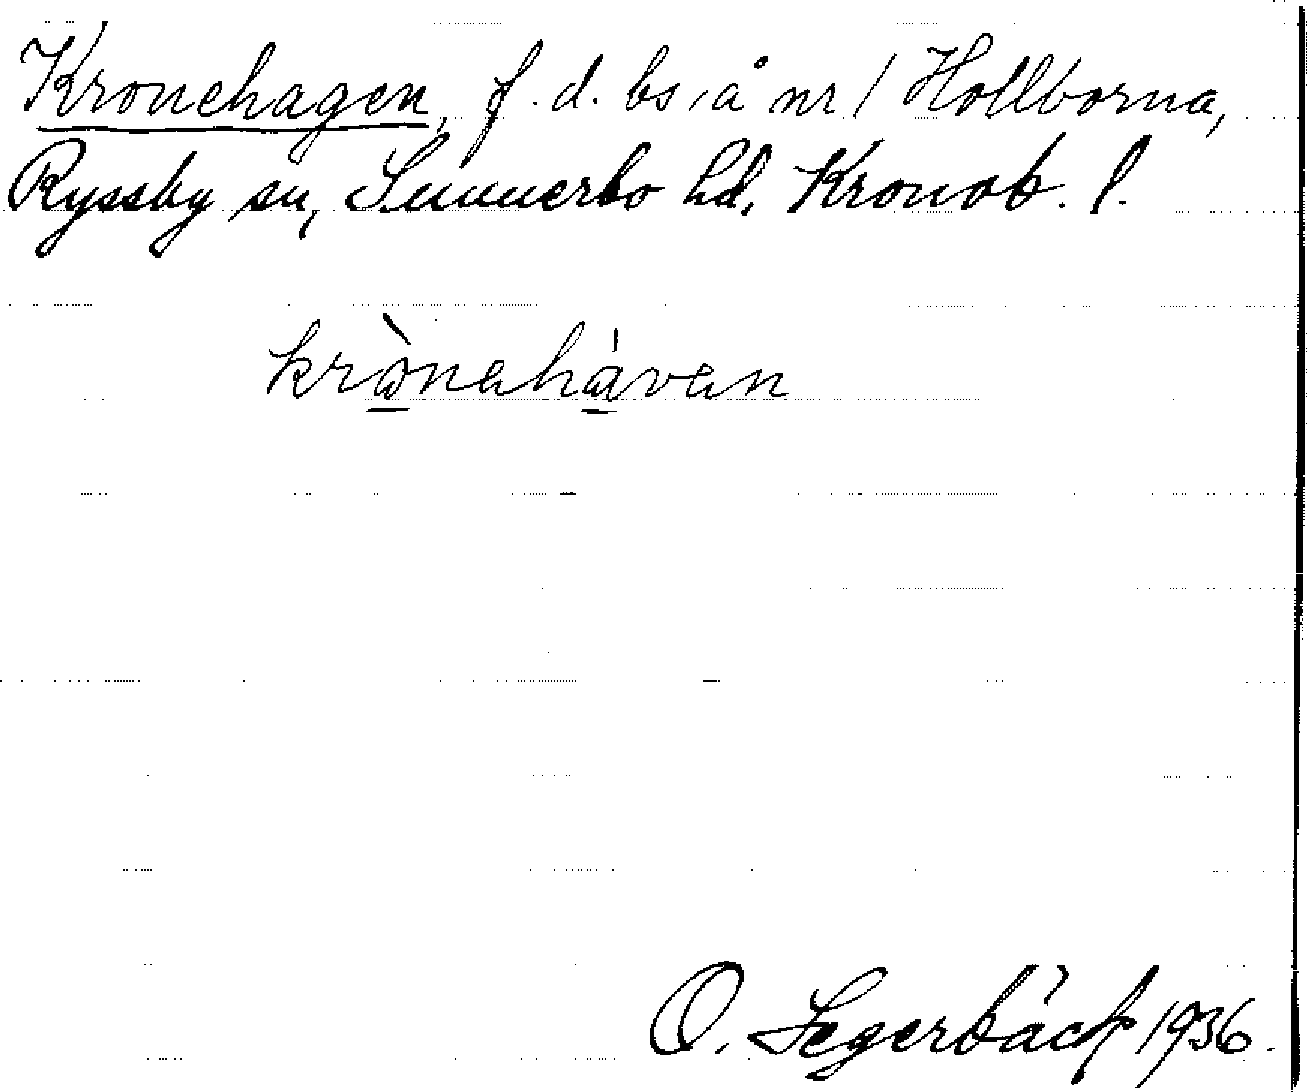 Kronehagen, f. d. bs, å nr 1 Hollborna,
Ryssby sn, Sunnerbo hd. Kronob. l.
krònehávan
O. Segerbäck 1936.